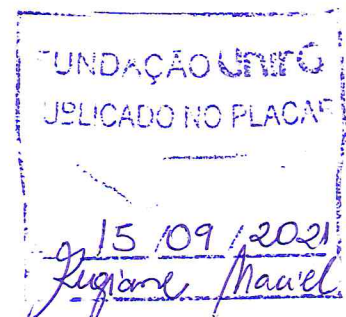 FUNDAÇÃO UnirG
PUBLICADO NO PLACAR
15/09/2021
Maciel